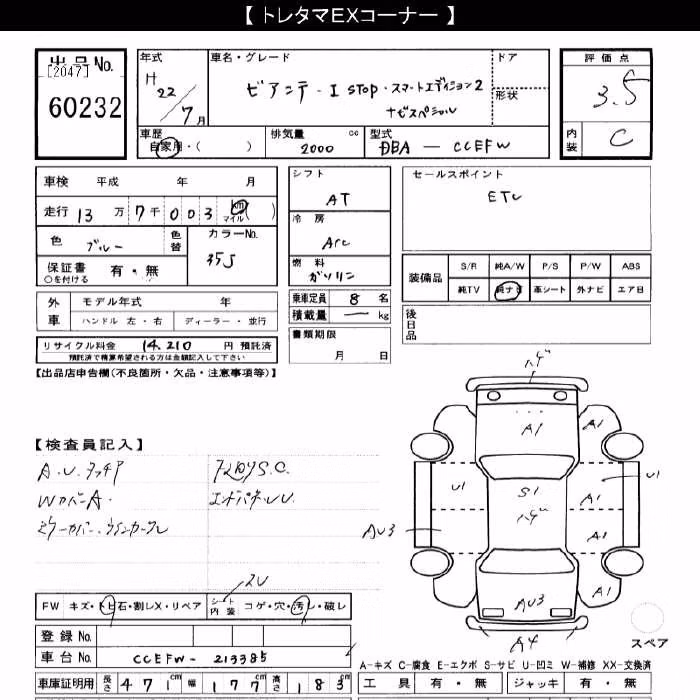 【 トレタマEXコーナー 】
出品 No.
[2047]
60232
年式
H 22/7月
車名・グレード
ビアンテ - I STOP・スマートエディション2
ナビスペシャル
ドア
形状
評価点
3.5
内装
C
車歴
自家用・( )
排気量 cc
2000
型式
DBA - CCEFW
車検 平成 年 月
走行 13万7千003 km マイル ( )
色 ブルー
色替
カラーNo.
35J
保証書 ○を付ける 有・無
シフト
AT
冷房
AAC
燃料
ガソリン
乗車定員 8 名
積載量 ー kg
書類期限
月 日
セールスポイント
ETC
装備品
S/R 純A/W P/S P/W ABS
純TV 純ナビ 革シート 外ナビ エア日
後日品
外車
モデル年式 年
ハンドル 左・右 ディーラー・並行
リサイクル料金 14,210 円 預託済
預託済で精算希望される方は金額記入して下さい
【出品店申告欄(不良箇所・欠品・注意事項等)】
【検査員記入】
A.U.
WカバーA.
エンドパネルU
ミラーカバー、ウインカーワレ
ハゲ
A1
A1
U1
S1
ハゲ
A1
U1
AU3
A1
AU3
A1
A4
スペア
FW キズ・トビ石・割レX・リペア
シート内装 コゲ・穴・汚レ・破レ
2U
登録 No.
車台 No. CCEFW - 213385
車庫証明用 長さ 471cm 幅 177cm 高さ 183cm
A-キズ C-腐食 E-エクボ S-サビ U-凹ミ W-補修 XX-交換済
工具 有・無 ジャッキ 有・無